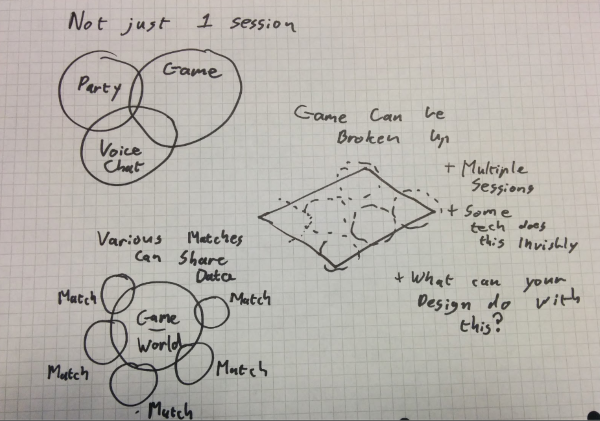 Not just 1 session
Party
Game
Voice
Chat
Game Can be
Broken Up
+ Multiple
Sessions
+ Some
tech does
this Invisibly
+ What can your
Design do with
this?
Various Matches
Can Share
Data
Match
Match
Game
World
Match
Match
Match